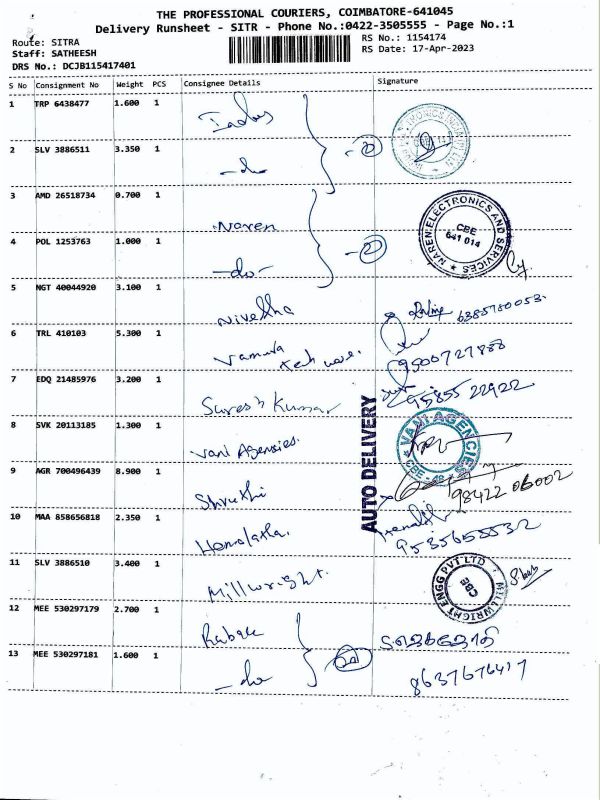 THE PROFESSIONAL COURIERS, COIMBATORE-641045
Delivery Runsheet - SITR - Phone No.:0422-3505555 - Page No.:1
Route: SITRA
RS No.: 1154174
Staff: SATHEESH
RS Date: 17-Apr-2023
DRS No.: DCJB115417401
S No Consignment No Weight PCS Consignee Details Signature
1 TRP 6438477 1.600 1
2 SLV 3886511 3.350 1 -do
3 AMD 26518734 0.700 1 Naren
NAREN ELECTRONICS AND SERVICES
CBE
641 014
4 POL 1253763 1.000 1 -do-
5 NGT 40044920 3.100 1 Nivetha 6385780053
6 TRL 410103 5.300 1 9500727888
7 EDQ 21485976 3.200 1 Suresh Kumar 95855 22922
AUTO DELIVERY
8 SVK 20113185 1.300 1 Vani Agencies
VANI AGENCIES
9 AGR 700496439 8.900 1 Shruthi 98422 06002
10 MAA 858656818 2.350 1 Hemalatha 9535655532
11 SLV 3886510 3.400 1 Millwright
MILLWRIGHT ENGG PVT LTD
CBE
12 MEE 530297179 2.700 1
13 MEE 530297181 1.600 1 -do 8637676417